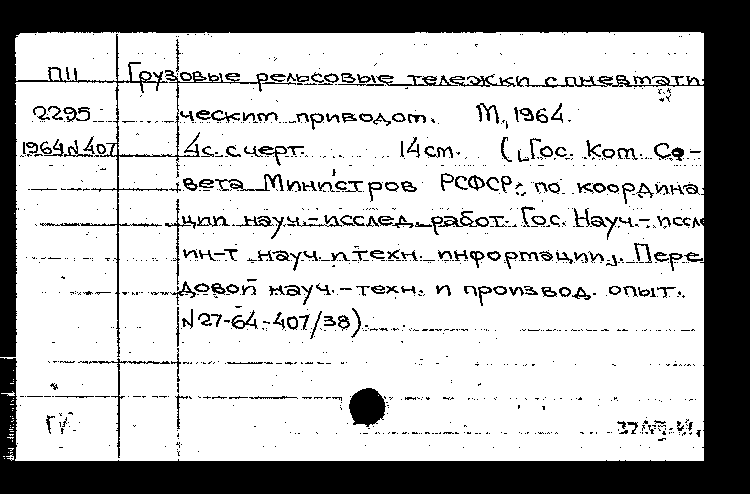 П11 Грузовые рельсовые тележки с пневмати-
2295 ческим приводом. М., 1964.
1964 N 407 4 с. с черт. 14 см. (Гос. Ком. Со-
вета Министров РСФСР по координа-
ции науч.-исслед. работ. Гос. Науч.-иссле
ин-т науч. и техн. информации. Пере
довой науч.-техн. и производ. опыт.
N 27-64-407/38).